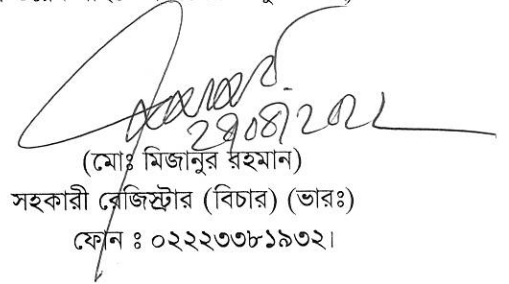 ২৭/০৪/২০২২
(মোঃ মিজানুর রহমান)
সহকারী রেজিস্ট্রার (বিচার) (ভারঃ)
ফোন ঃ ০২২২৩৩৮১৯৩২।